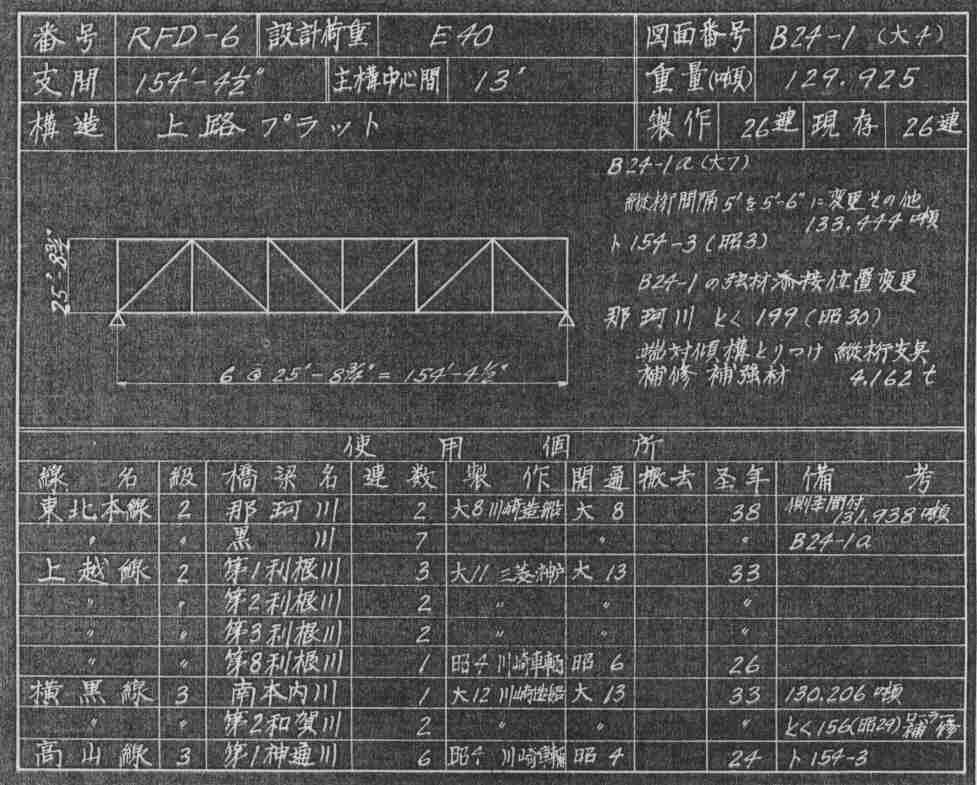 番号 RFD-6 設計荷重 E40 図面番号 B24-1 (大4)
支間 154'-4½" 主構中心間 13' 重量(噸) 129.925
構造 上路プラット 製作 26連 現存 26連
B24-1a (大7)
縦桁間隔 5'を5'-6"に変更その他
133.444噸
ト154-3 (昭3)
B24-1の弦材添接位置変更
那珂川 とく199 (昭30)
端対傾構とりつけ 縦桁支点
補修 補強材 4.162t
25'-8¾"
6@25'-8¾"=154'-4½"
使用個所
線名 級 橋梁名 連数 製作 開通 撤去 圣年 備考
東北本線 2 那珂川 2 大8 川崎造船 大8 38 側歩間付 131.938噸
〃 〃 黒川 7 〃 〃 B24-1a
上越線 2 第1利根川 3 大11 三菱神戸 大13 33
〃 〃 第2利根川 2 〃 〃 〃
〃 〃 第3利根川 2 〃 〃 〃
〃 〃 第8利根川 1 昭4 川崎車輌 昭6 26
横黒線 3 南本内川 1 大12 川崎造船 大13 33 130.206噸
〃 〃 第2和賀川 2 〃 〃 〃 とく156(昭29) 補修
高山線 3 第1神通川 6 昭4 川崎車輌 昭4 24 ト154-3